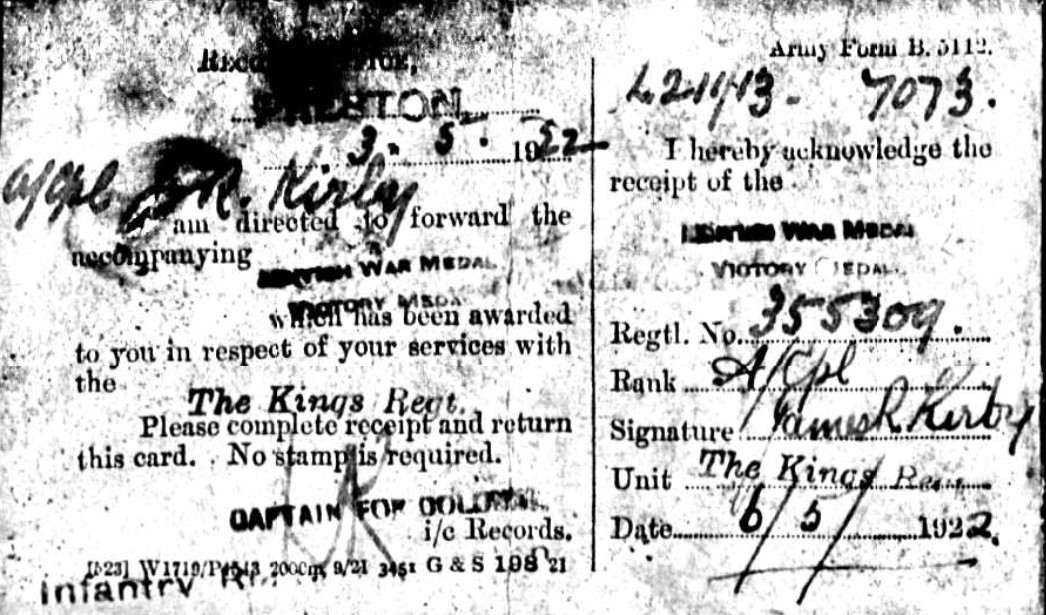 PRESTON
3. 5. 1922
A/Cpl J.R. Kirby
am directed to forward the
accompanying
BRITISH WAR MEDAL
VICTORY MEDAL
which has been awarded
to you in respect of your services with
the
The Kings Regt.
Please complete receipt and return
this card. No stamp is required.
CAPTAIN FOR COLONEL
i/c Records.
9/21 3451 G & S 198 21
Infantry
Army Form B. 5112.
7073.
I hereby acknowledge the
receipt of the
BRITISH WAR MEDAL
VICTORY MEDAL
Regtl. No. 355309.
Rank A/Cpl
Signature James R Kirby
Unit The Kings
Date 6/5/1922.